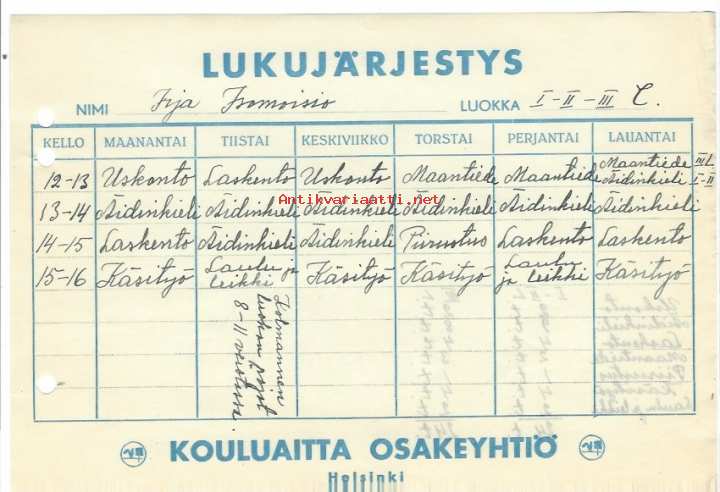 LUKUJÄRJESTYS
NIMI Irja Isomoisio LUOKKA I-II-III C.
KELLO MAANANTAI TIISTAI KESKIVIIKKO TORSTAI PERJANTAI LAUANTAI
12-13 Uskonto Laskento Uskonto Maantiede Maantiede Maantiede III L. Äidinkieli I-II
Antikvariaatti.net
13-14 Äidinkieli Äidinkieli Äidinkieli Äidinkieli Äidinkieli Äidinkieli
14-15 Laskento Äidinkieli Äidinkieli Piirustus Laskento Laskento
15-16 Käsityö Laulu ja leikki Käsityö Käsityö Laulu ja leikki Käsityö
Kolmannen
luokan pojat
8-11 veistossa.
KOULUAITTA OSAKEYHTIÖ
Helsinki